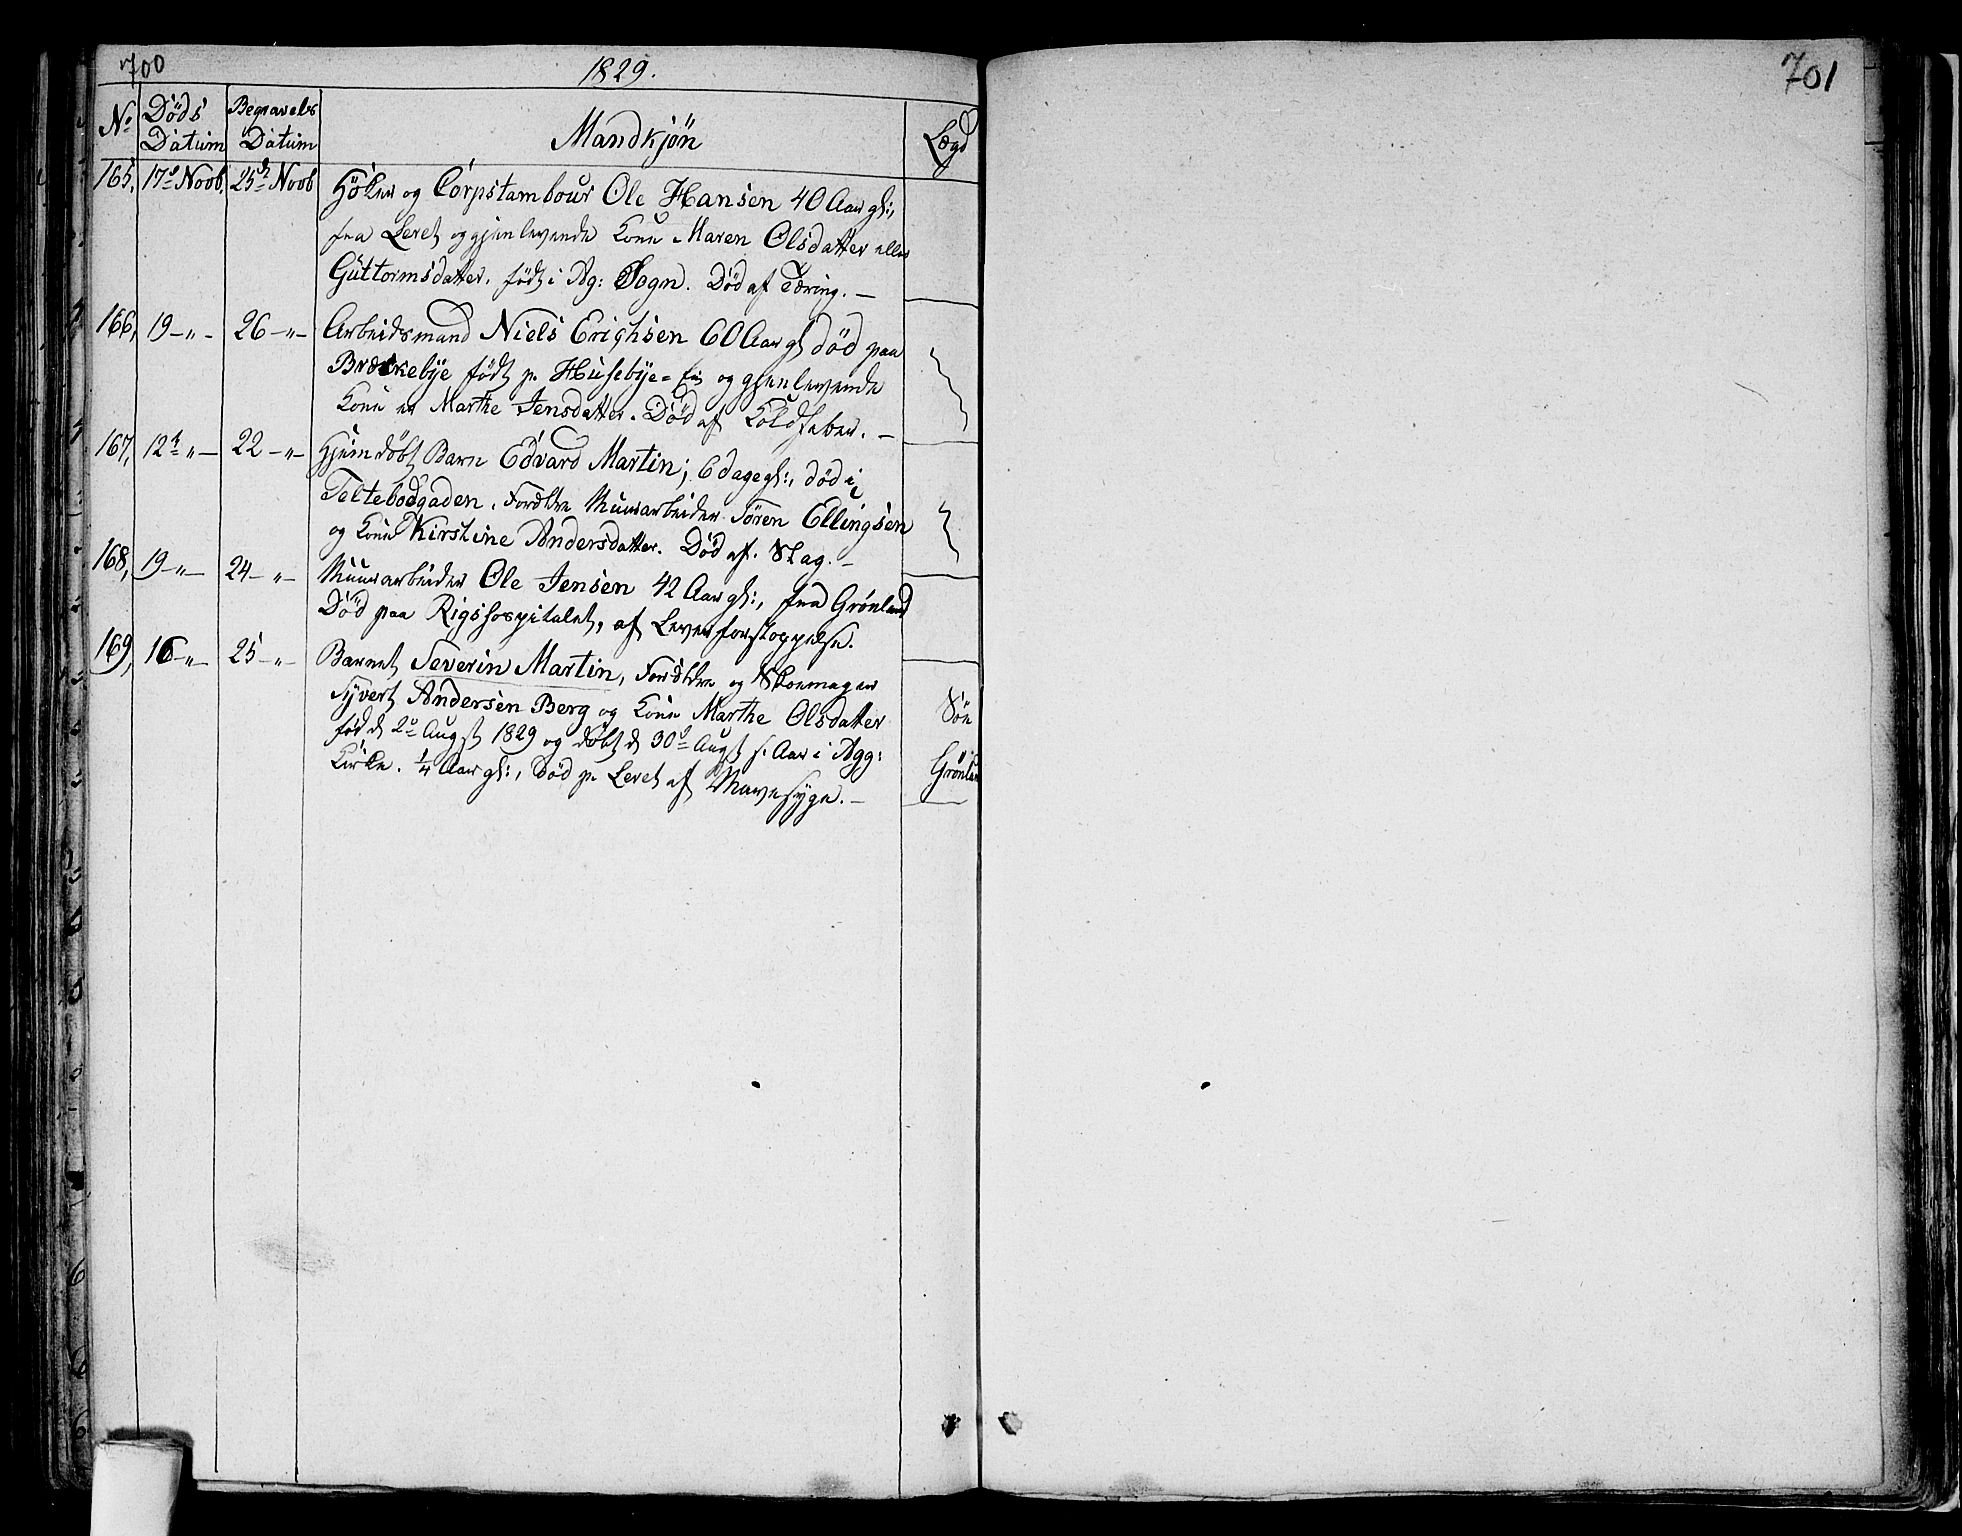 700
1829.
701
No Døds Datum Begravels Datum Mandkjøn Lægd
165, 17de Novb. 25de Novb Høker og Corpstambour Ole Hansen 40 Aar gl:,
fra Leret og gjenlevende Kone Maren Olsdatter eller
Güttormsdatter. født i Ag: Sogn. Død af Tæring. —
166, 19 — „ - 26 — „ — Arbeidsmand Niels Erichsen 60 Aar gl død paa
Brækkebye født p. Husebye= og gjenlevende
Kone er Marthe Jensdatter. Død af Koldfeber. —
167, 12te „ — 22 — „ — Hjemdøbt Barn Edvard Martin; 6 dage gl:, død i
Teltebodgaden. Forældre Muurarbeider Søren Ellingsen
og Kone Kirstine Andersdatter. Død af. Slag. —
168, 19 — „ — 24 — „ — Muurarbeider Ole Jensen 42 Aar gl:, fra Grønland
Død paa Rigshospitalet, af Leverforstoppelse.
169, 16 — „ — 25 — „ — Barnet Severin Martin, Forældre og Skoemager
Syvert Andersen Berg og Kone Marthe Olsdatter
Søn
fød d 2de Augst 1829 og døbt d 30de Augst s. Aar i Agg:
Kirke. 1/4 Aar gl:, Død p. Leret af Mavesyge. —
Grønlan